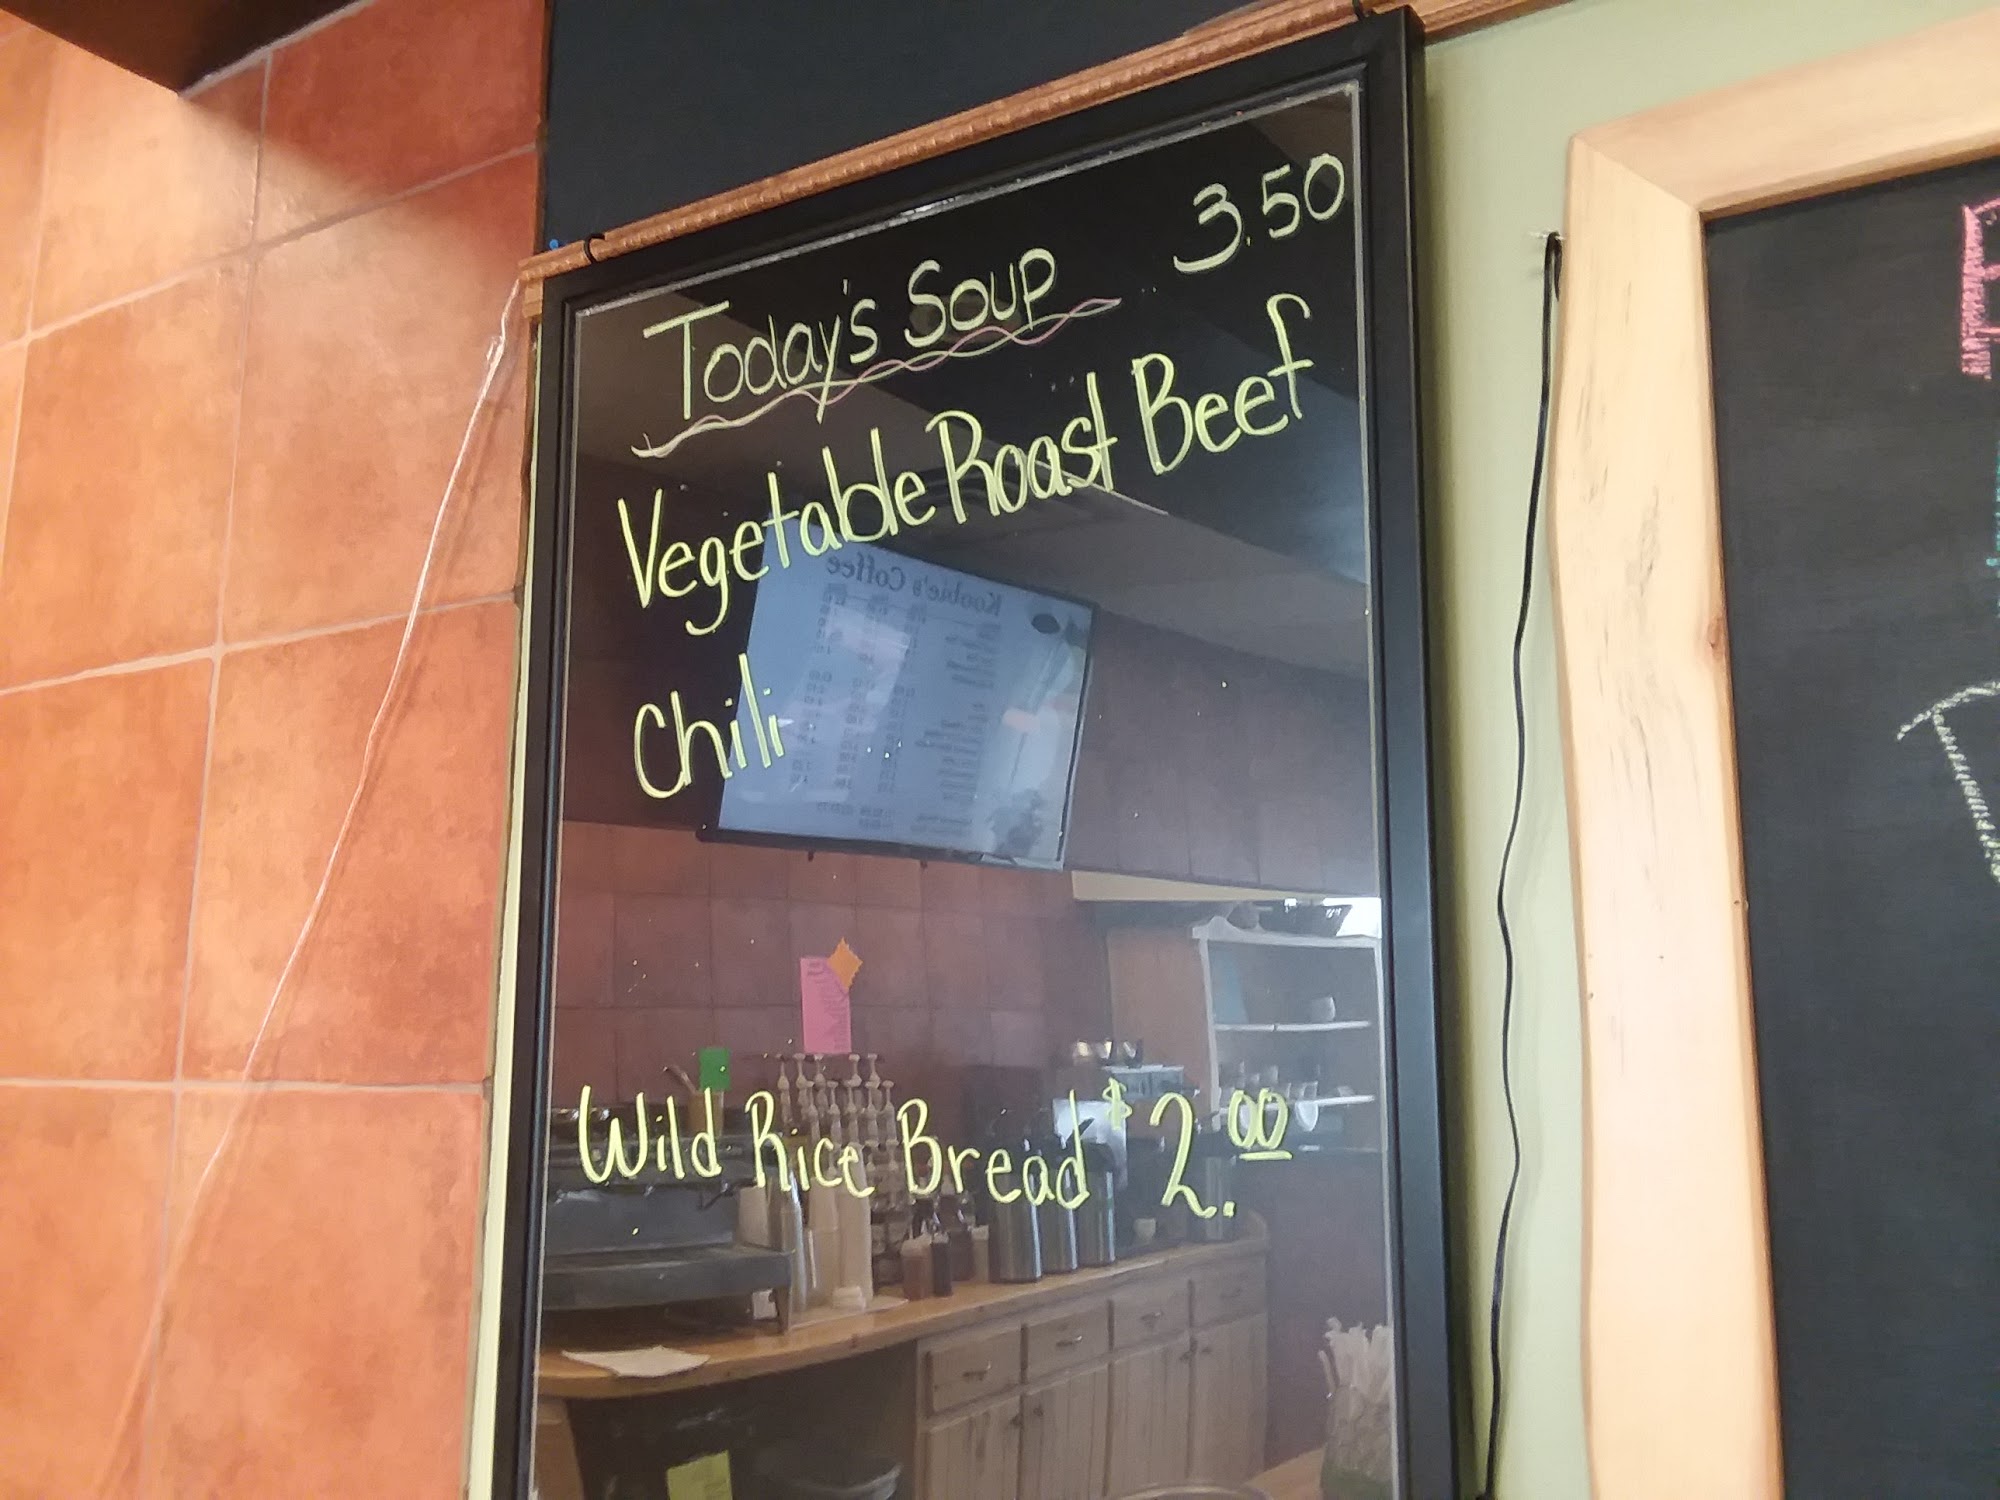 Today's Soup 3.50
Vegetable Roast Beef
Chili
Koobie's Coffee
Wild Rice Bread $2.00